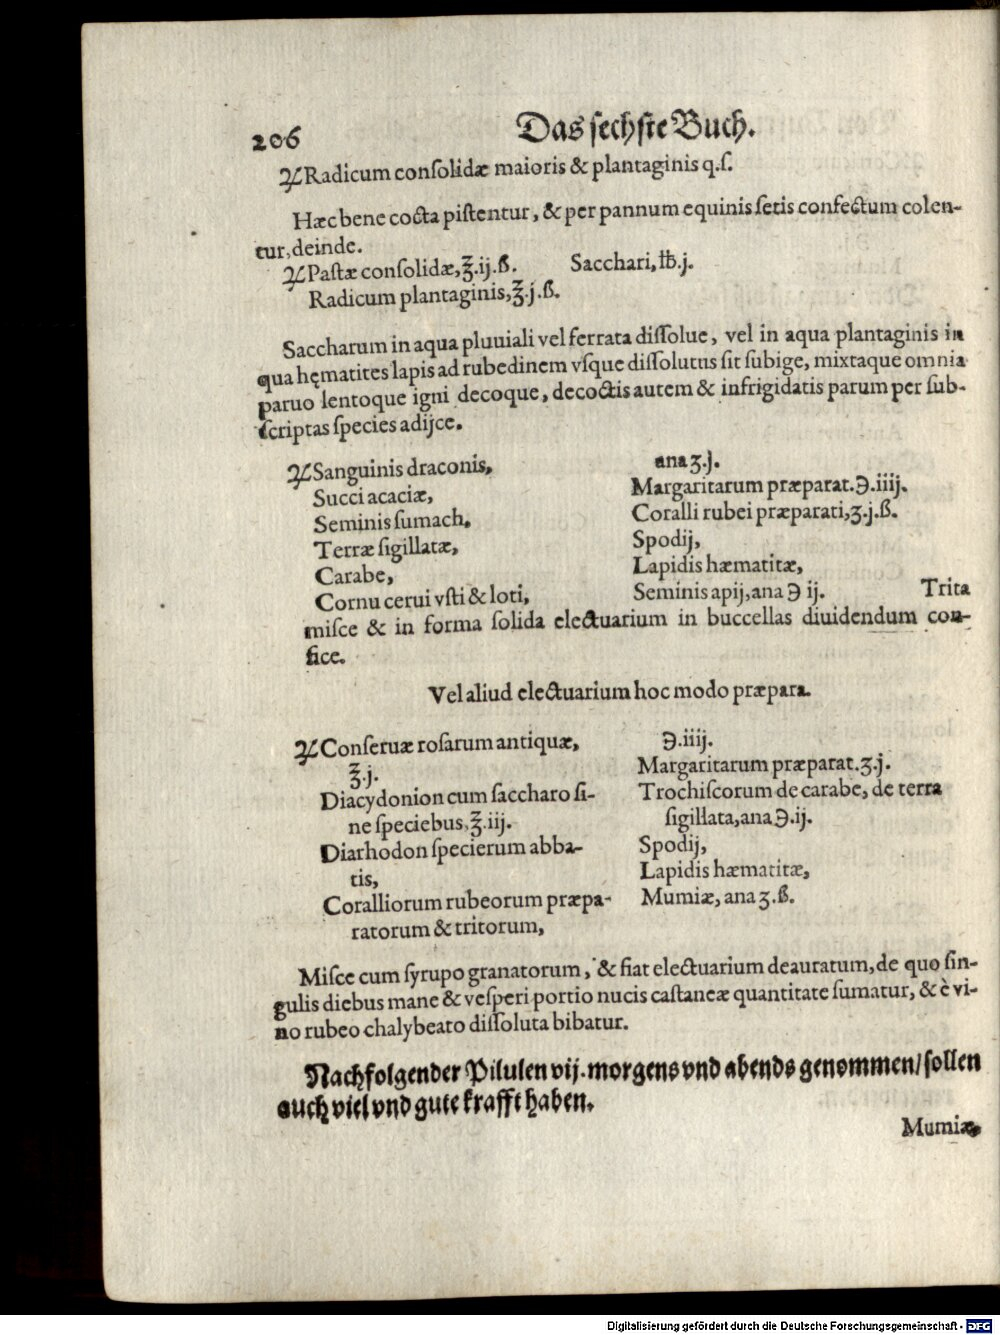 206
Das sechste Buch.
℞ Radicum conſolidæ maioris & plantaginis q.ſ.
Hæc bene cocta piſtentur, & per pannum equinis ſetis confectum colen-
tur, deinde.
℞ Paſtæ conſolidæ, ℥.ij.ß.
Sacchari, ℔.j.
Radicum plantaginis, ℥.j.ß.
Saccharum in aqua pluuiali vel ferrata diſſolue, vel in aqua plantaginis in
qua hęmatites lapis ad rubedinem vſque diſſolutus ſit ſubige, mixtaque omnia
paruo lentoque igni decoque, decoctis autem & infrigidatis parum per ſub-
ſcriptas ſpecies adijce.
℞ Sanguinis draconis,
Succi acaciæ,
Seminis ſumach,
Terræ ſigillatæ,
Carabe,
Cornu cerui vſti & loti,
ana ʒ.j.
Margaritarum præparat.℈.iiij.
Coralli rubei præparati, ʒ.j.ß.
Spodij,
Lapidis hæmatitæ,
Seminis apij, ana ℈ ij.
Trita
miſce & in forma ſolida electuarium in buccellas diuidendum con-
fice.
Vel aliud electuarium hoc modo præpara.
℞ Conſeruæ roſarum antiquæ,
℥.j.
Diacydonion cum ſaccharo ſi-
ne ſpeciebus, ℥.iij.
Diarhodon ſpecierum abba-
tis,
Coralliorum rubeorum præpa-
ratorum & tritorum,
℈.iiij.
Margaritarum præparat.ʒ.j.
Trochiſcorum de carabe, de terra
ſigillata, ana ℈.ij.
Spodij,
Lapidis hæmatitæ,
Mumiæ, ana ʒ.ß.
Miſce cum ſyrupo granatorum, & fiat electuarium deauratum, de quo ſin-
gulis diebus mane & veſperi portio nucis caſtaneæ quantitate ſumatur, & è vi-
no rubeo chalybeato diſſoluta bibatur.
Nachfolgender Pilulen vij. morgens vnd abends genommen/ ſollen
auch viel vnd gute krafft haben.
Mumiæ,
Digitalisierung gefördert durch die Deutsche Forschungsgemeinschaft - DFG